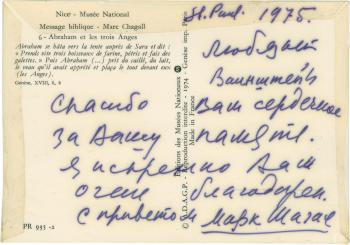 Nice - Musée National
Message biblique - Marc Chagall
6 - Abraham et les trois Anges
Abraham se hâta vers la tente auprès de Sara et dit :
« Prends vite trois boisseaux de farine, pétris et fais des
galettes. » Puis Abraham (...) prit du caillé, du lait,
le veau qu'il avait apprêté et plaça le tout devant eux
(les Anges).
Genèse, XVIII, 6, 8
PR 953 -2
Éditions des Musées Nationaux
© A.D.A.G.P. - Reproduction interdite - 1974 - Genèse imp. Paris
Made in France
St. Paul. 1975.
Спасибо
за Вашу
Вам сердечное
память.
Я искренно Вам
очень благодарен.
с приветом
Марк Шагал